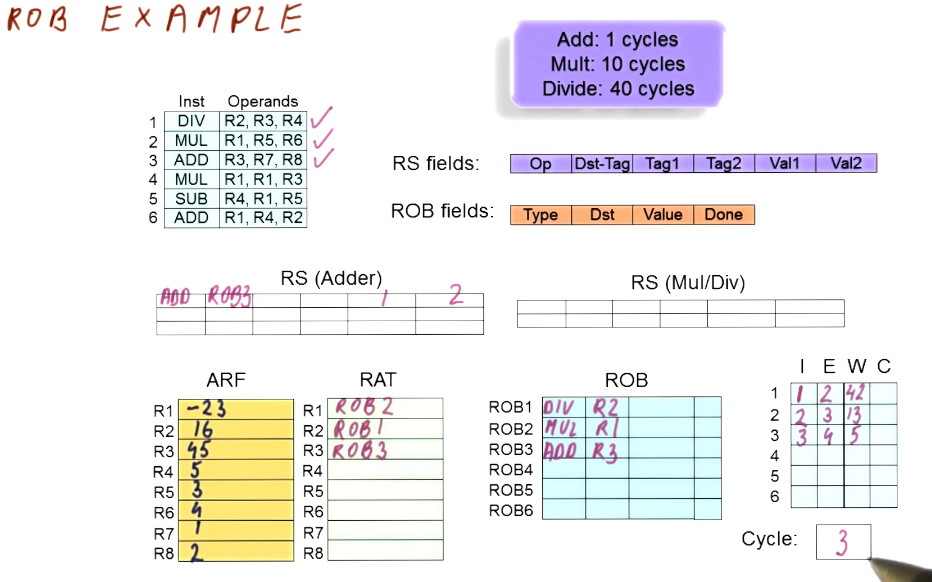 ROB EXAMPLE
Add: 1 cycles
Mult: 10 cycles
Divide: 40 cycles
Inst Operands
1 DIV R2, R3, R4 ✓
2 MUL R1, R5, R6 ✓
3 ADD R3, R7, R8 ✓
4 MUL R1, R1, R3
5 SUB R4, R1, R5
6 ADD R1, R4, R2
RS fields: Op Dst-Tag Tag1 Tag2 Val1 Val2
ROB fields: Type Dst Value Done
RS (Adder)
ADD ROB3 1 2
RS (Mul/Div)
ARF
R1 -23
R2 16
R3 45
R4 5
R5 3
R6 4
R7 1
R8 2
RAT
R1 ROB2
R2 ROB1
R3 ROB3
R4
R5
R6
R7
R8
ROB
ROB1 DIV R2
ROB2 MUL R1
ROB3 ADD R3
ROB4
ROB5
ROB6
I E W C
1 1 2 42
2 2 3 13
3 3 4 5
4
5
6
Cycle: 3